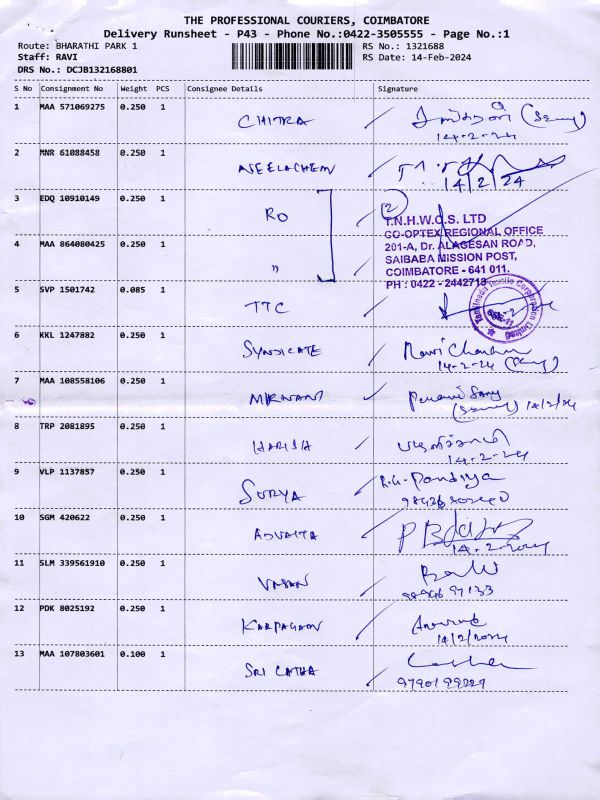 THE PROFESSIONAL COURIERS, COIMBATORE
Delivery Runsheet - P43 - Phone No.:0422-3505555 - Page No.:1
Route: BHARATHI PARK 1
RS No.: 1321688
Staff: RAVI
RS Date: 14-Feb-2024
DRS No.: DCJB132168801
S No Consignment No Weight PCS Consignee Details Signature
1 MAA 571069275 0.250 1 CHITRA
14-2-24
2 MNR 61088458 0.250 1 NEELACHEAN
14/2/24
3 EDQ 10910149 0.250 1 RO 2
T.N.H.W.C.S. LTD
CO-OPTEX REGIONAL OFFICE
4 MAA 864080425 0.250 1 "
201-A, Dr. ALAGESAN ROAD,
SAIBABA MISSION POST,
COIMBATORE - 641 011.
PH : 0422 - 2442718
5 SVP 1501742 0.085 1 TTC
6 KKL 1247882 0.250 1 SYNDICATE
14-2-24
7 MAA 108558106 0.250 1 MIRNANI
14/2/24
8 TRP 2081895 0.250 1 HARISH
14-2-24
9 VLP 1137857 0.250 1 SURYA R.G. Pandiya
10 SGM 420622 0.250 1 ADVAITA
14-2-2024
11 SLM 339561910 0.250 1 VASAN
12 PDK 8025192 0.250 1 KARPAGAM
14/2/2024
13 MAA 107803601 0.100 1 SRI LATHA
9790199229